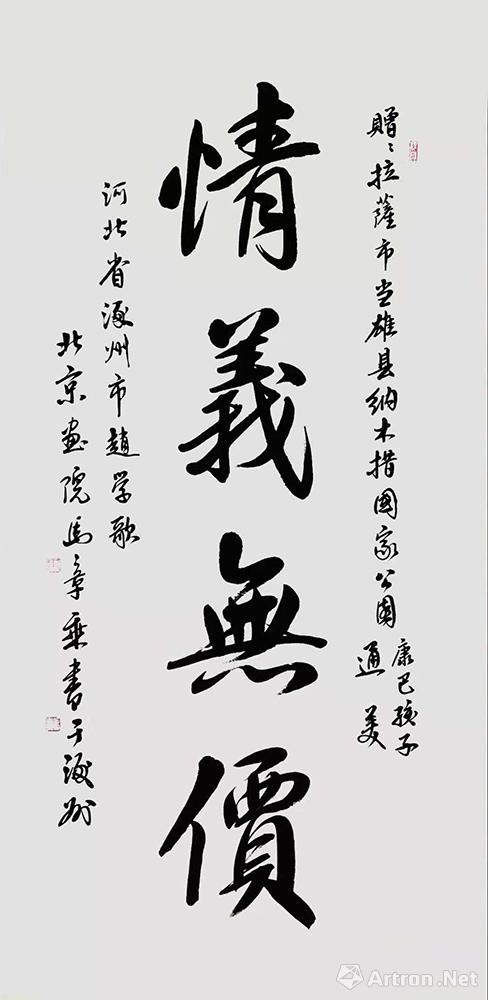 贈、拉薩市当雄县納木措國家公園
康巴孩子
通美
情義無價
河北省涿州市趙学歌
北京画院馬章乘書于涿州
Artron.Net